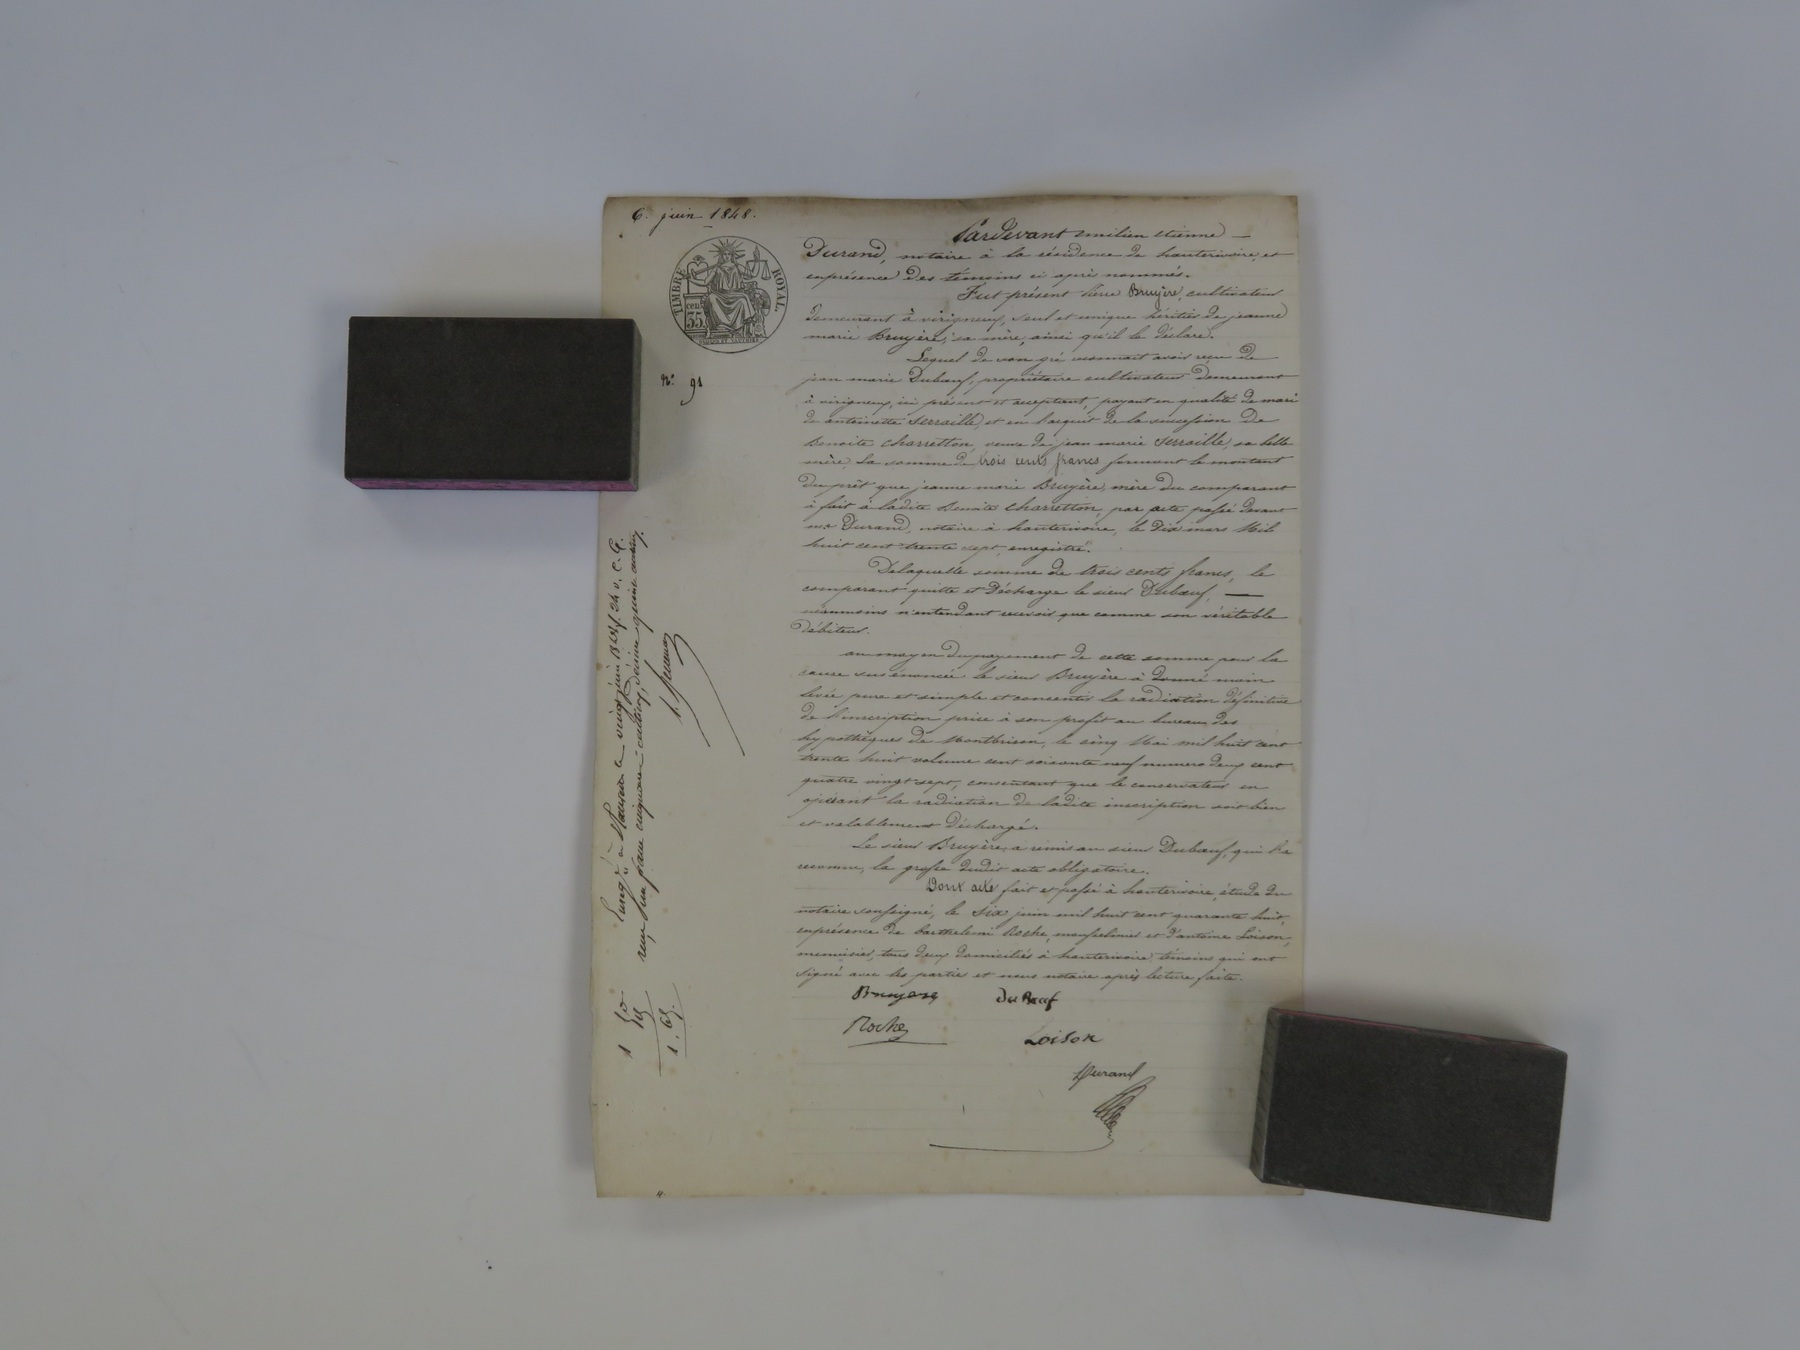 6. juin 1848.
TIMBRE ROYAL.
cen. 35.
N.° 91
Pardevant emilien etienne —
Durand, notaire à la résidence de hauterivoire, et
enprésence des témoins ci après nommés.
Fut présent Bruyère, cultivateur
demeurant à virigneux, seul et unique héritié de jeanne
marie Bruyère, sa mère, ainsi qu'il le déclare.
Lequel de son gré reconnait avoir reçu de
jean marie Dubœuf, propriétaire cultivateur demeurant
à virigneux, ici présent et acceptant, payant en qualité de mari
de antoinette Serraille, et en l'acquit de la succession de
Benoite Charretton, veuve de jean marie Serraille, sa belle
mère, la somme de trois cents francs formant le montant
du prêt que jeanne marie Bruyère, mère du comparant
à fait à ladite Benoite Charretton, par acte passé devant
me Durand, notaire à hauterivoire, le dix mars Mil
huit cent trente sept, enregistré.
Delaquelle somme de trois cents francs, le
comparant quitte et décharge le sieur Dubœuf, —
néanmoins n'entendant recevoir que comme son véritable
débiteur.
au moyen dupayement de cette somme pour la
cause susénoncée le sieur Bruyère à donné main
levée pure et simple et consentis la radiation définitive
de l'inscription prise à son profit au bureau des
hypothèques de Montbrison, le cinq Mai mil huit cent
trente huit volume cent soixante neuf numero deux cent
quatre vingt sept, consentant que le conservateur en
opérant la radiation de ladite inscription soit bien
et valablement déchargé.
Le sieur Bruyère, a remis au sieur Dubœuf, qui l'a
reconnu, la grosse dudit acte obligatoire.
Dont acte fait et passé à hauterivoire, étude du
notaire soussigné, le six juin mil huit cent quarante huit,
enprésence de barthelemi Roche, et d'antoine Loison,
menuisier, tous deux domiciliés à hauterivoire, témoins qui ont
signé avec les parties et nous notaire après lecture faite.
Bruyere Du Bœuf
Roche
Loison
Durand
1 50
15
1. 65.